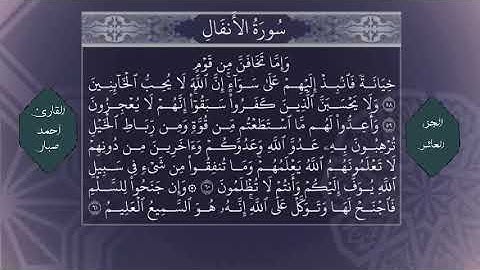 سُورَةُ الأَنفَالِ
وَإِمَّا تَخَافَنَّ مِن قَوْمٍ
خِيَانَةً فَٱنۢبِذْ إِلَيْهِمْ عَلَىٰ سَوَآءٍ ۚ إِنَّ ٱللَّهَ لَا يُحِبُّ ٱلْخَآئِنِينَ
٥٨ وَلَا يَحْسَبَنَّ ٱلَّذِينَ كَفَرُوا۟ سَبَقُوٓا۟ ۚ إِنَّهُمْ لَا يُعْجِزُونَ
٥٩ وَأَعِدُّوا۟ لَهُم مَّا ٱسْتَطَعْتُم مِّن قُوَّةٍ وَمِن رِّبَاطِ ٱلْخَيْلِ
تُرْهِبُونَ بِهِۦ عَدُوَّ ٱللَّهِ وَعَدُوَّكُمْ وَءَاخَرِينَ مِن دُونِهِمْ
لَا تَعْلَمُونَهُمُ ٱللَّهُ يَعْلَمُهُمْ ۚ وَمَا تُنفِقُوا۟ مِن شَىْءٍ فِى سَبِيلِ
ٱللَّهِ يُوَفَّ إِلَيْكُمْ وَأَنتُمْ لَا تُظْلَمُونَ ٦٠ ۞ وَإِن جَنَحُوا۟ لِلسَّلْمِ
فَٱجْنَحْ لَهَا وَتَوَكَّلْ عَلَى ٱللَّهِ ۚ إِنَّهُۥ هُوَ ٱلسَّمِيعُ ٱلْعَلِيمُ ٦١
الجزء
العاشر
القارئ
احمد
صبار